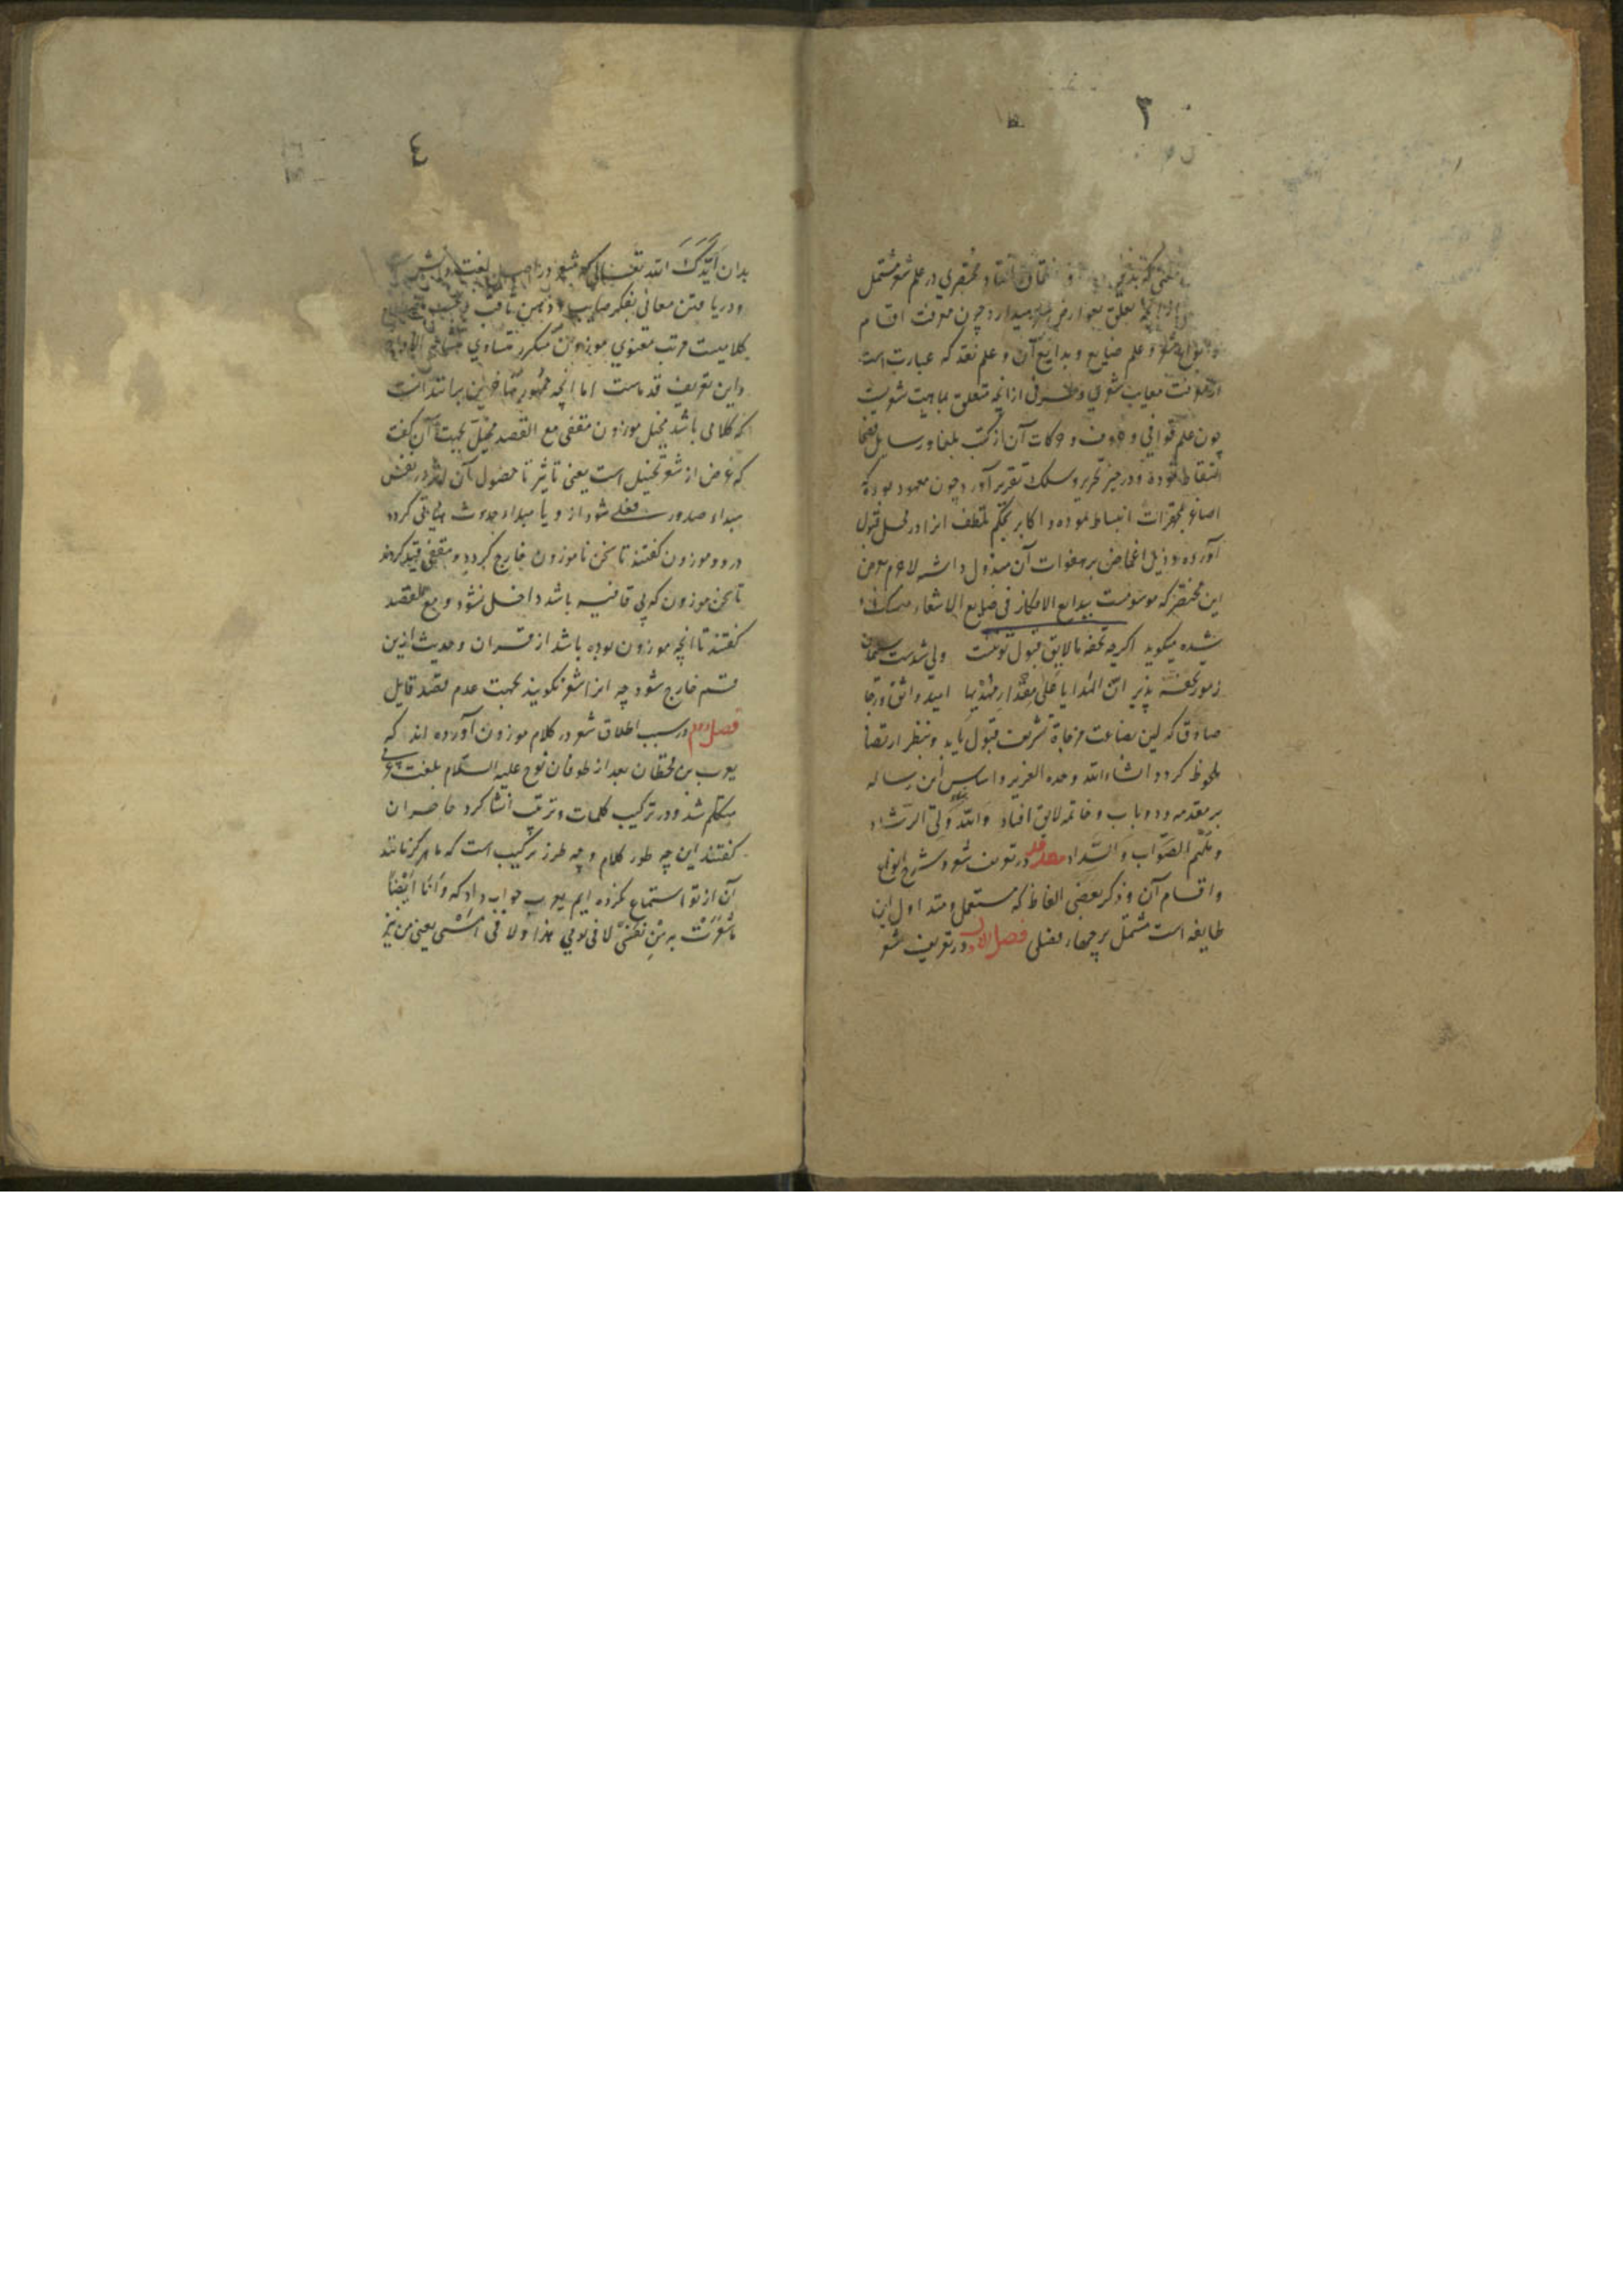 ٣
در علم شعر مشتمل
تعلق بعوارض میدارد چون معرفت اقسام
و علم صنایع و بدایع آن و علم نقد که عبارت است
از معرفت معایب شعری و طرفی از انچه متعلق بماهیت شعریست
چون علم قوافی و حروف و حرکات آن از کتب بلغا و رسایل فصحا
التقاط نموده و در حیز تحریر و سلک تقریر آورد و چون معهود بوده که
اصاغر انبساط نموده و اکابر بحکم تلطف انرا در محل قبول
آورده و ذیل اغماض بر هفوات آن مبذول داشته لاجرم معرض
این مختصر که موسومست ببدایع الافکار فی صنایع الاشعار
شده میگوید اگرچه تحفهٔ ما لایق قبول تو نیست ولی شدست سلیمان
ز مور تحفه پذیر ان الهدایا علی مقدار مهدیها امید واثق و رجا
صادق که این بضاعت مزجاة تشریف قبول یابد و بنظر ارتضا
ملحوظ کردد انشاء الله وحده العزیز و اساس این رساله
بر مقدمه و دو باب و خاتمه لایق افتاد والله ولی الرشاد
و ملهم الصواب والسداد مقدمه در تعریف شعر و شرح انواع
و اقسام آن و ذکر بعضی الفاظ که مستعمل و متداول این
طایفه است مشتمل بر چهار فصل فصل الاول در تعریف شعر
٤
بدان ایدک الله تعالی که شعر در اصل لغت دانش
و دریافتن معانی بفکر صایب و ذهن ثاقب
کلامیست مرتب معنوی موزون متکرر متساوی
و این تعریف قدماست اما انچه جمهور متاخرین برانند انست
که کلامی باشد مخیل موزون مقفی مع القصد مخیل بجهت آن گفت
که غرض از شعر تخییل است یعنی تاثیر تا حصول آن اثر در نفس
مبداء صدور فعلی شود ازو یا مبداء حدوث هیاتی کردد
درو و موزون گفتند تا سخن ناموزون خارج گردد و مقفی قید کردند
تا سخن موزون که بی قافیه باشد داخل نشود و مع القصد
گفتند تا انچه موزون بوده باشد از قران و حدیث ازین
قسم خارج شود چه انرا شعر نگویند بجهت عدم قصد قایل
فصل دوم در سبب اطلاق شعر در کلام موزون آورده اند که
یعرب بن قحطان بعد از طوفان نوح علیه السلام بلغت عربی
متکلم شد و در ترکیب کلمات و ترتیب انشا کرد حاضران
گفتند این چه طور کلام و چه طرز ترکیب است که ما هرگز مانند
آن از تو استماع نکرده ایم یعرب جواب داد که و انا ایضا
ما شعرت به من نفسی لا فی یومی هذا و لا فی امسی یعنی من نیز